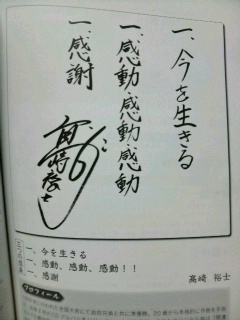 一、今を生きる
一、感動・感動・感動
一、感謝
高崎裕士
一、今を生きる
一、感動、感動、感動！！
一、感謝
高崎 裕士
プロフィール